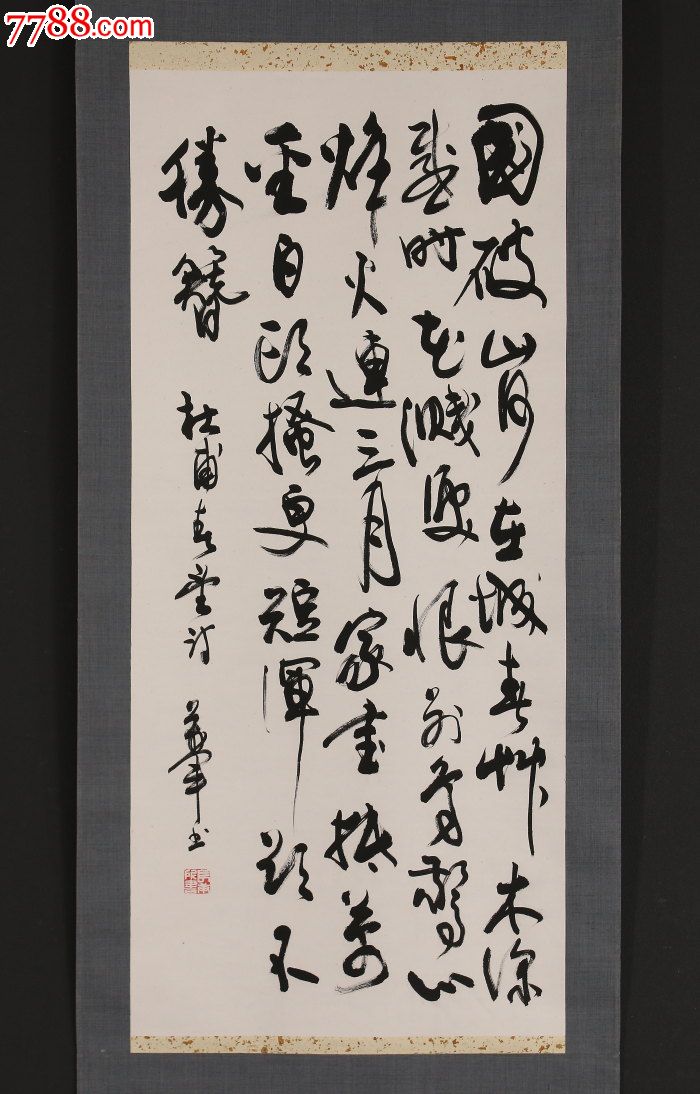 7788.com
國破山河在城春草木深
感時花濺淚恨別鳥驚心
烽火連三月家書抵萬
金白頭搔更短渾欲不
勝簪 杜甫春望詩 書